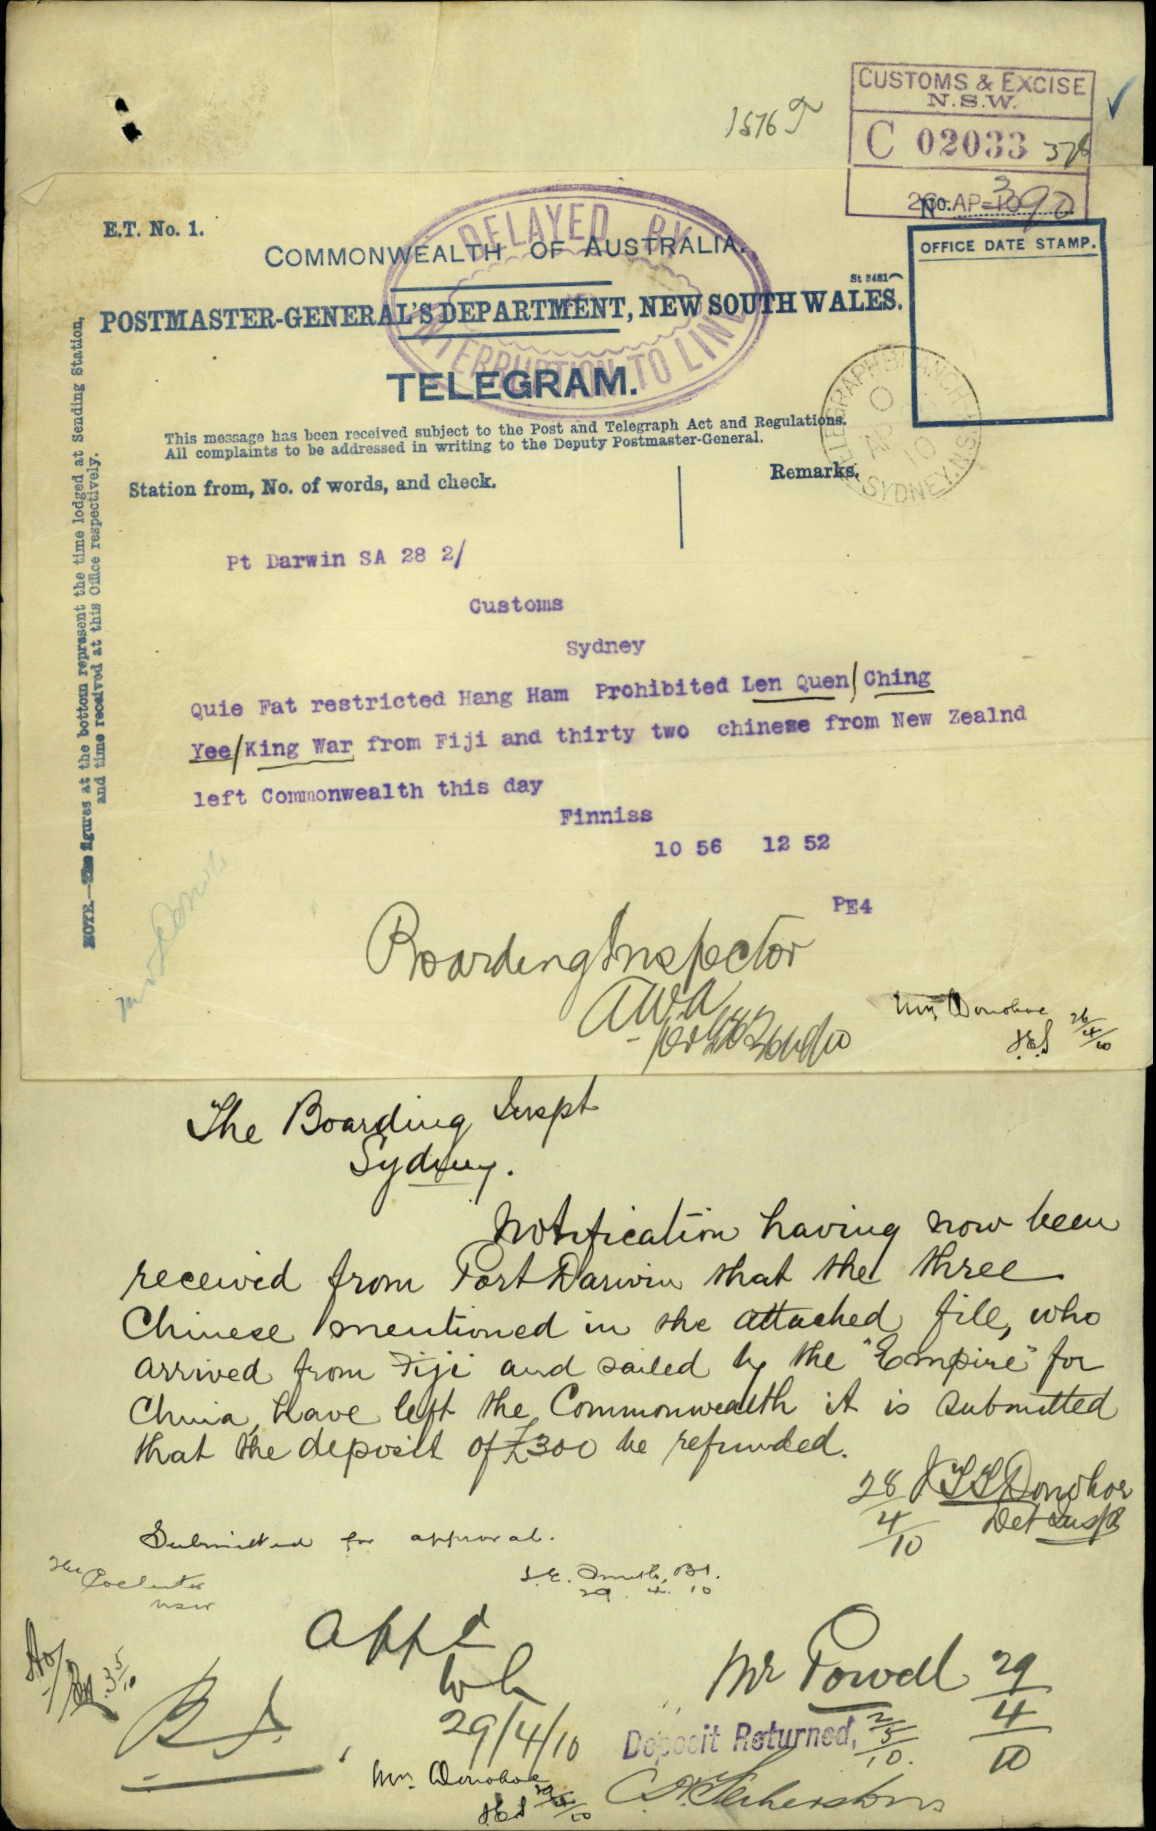 1576
CUSTOMS & EXCISE
N.S.W.
C 02033
26 AP 10
No. 390
E.T. No. 1.
DELAYED BY
INTERRUPTION TO LINE
COMMONWEALTH OF AUSTRALIA.
St 8481
OFFICE DATE STAMP.
POSTMASTER-GENERAL'S DEPARTMENT, NEW SOUTH WALES.
TELEGRAM.
TELEGRAPH BRANCH
AP 10
SYDNEY. N.S.W
This message has been received subject to the Post and Telegraph Act and Regulations.
All complaints to be addressed in writing to the Deputy Postmaster-General.
Station from, No. of words, and check.
Remarks.
NOTE.—The figures at the bottom represent the time lodged at Sending Station,
and time received at this Office respectively.
Pt Darwin SA 28 2/
Customs
Sydney
Quie Fat restricted Hang Ham Prohibited Len Quen/Ching
Yee/King War from Fiji and thirty two chinese from New Zealnd
left Commonwealth this day
Finniss
10 56 12 52
PE4
Boarding Inspector
Mr. Donohoe
26/4/10
The Boarding Inspt
Sydney.
Notification having now been
received from Port Darwin that the three
Chinese mentioned in the attached file, who
arrived from Fiji and sailed by the "Empire" for
China, have left the Commonwealth it is submitted
that the deposit of £300 be refunded.
28/4/10
J T T Donohoe
Det Inspr
Submitted for approval.
29.4.10
The Collector
NSW
Appd
29/4/10
3/5/10
Mr Powell 29/4/10
Deposit Returned, 2/5/10.
Mr. Donohoe